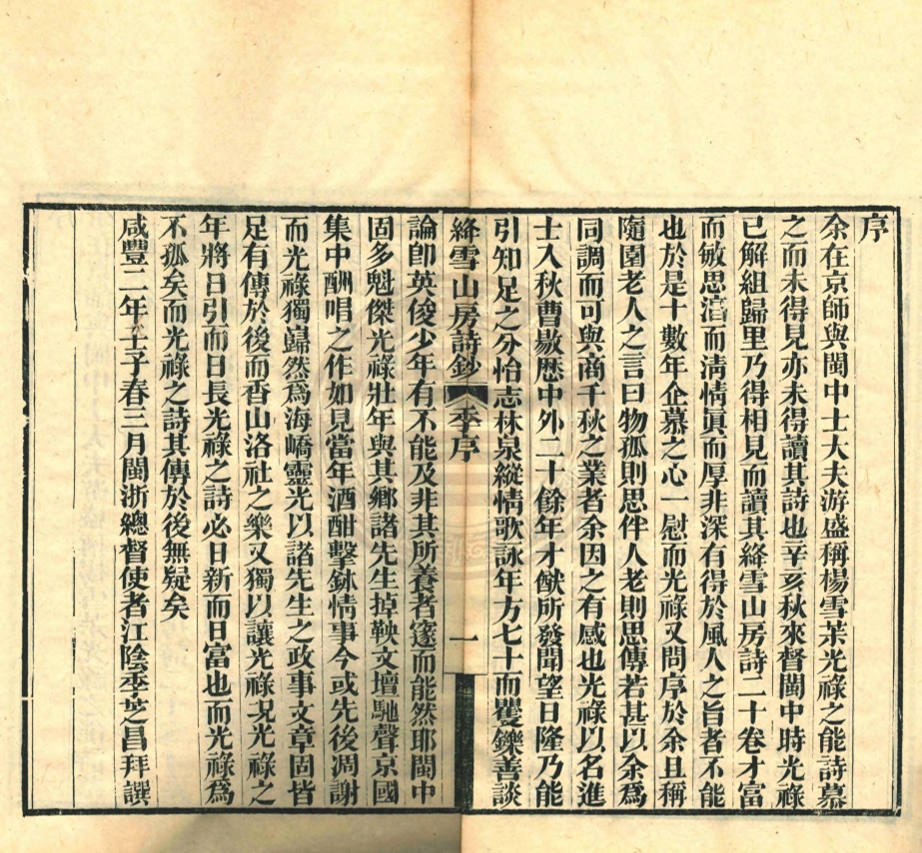 序
余在京師與閩中士大夫游盛稱楊雪茮光祿之能詩慕
之而未得見亦未得讀其詩也辛亥秋來督閩中時光祿
已解組歸里乃得相見而讀其絳雪山房詩二十卷才富
而敏思滀而淸情眞而厚非深有得於風人之旨者不能
也於是十數年企慕之心一慰而光祿又問序於余且稱
隨園老人之言曰物孤則思伴人老則思傳若甚以余爲
同調而可與商千秋之業者余因之有感也光祿以名進
士入秋曹敭歷中外二十餘年才猷所發聞望日隆乃能
引知足之分怡志林泉縱情歌詠年方七十而矍鑠善談
絳雪山房詩鈔 季序 一
論卽英俊少年有不能及非其所養者邃而能然耶閩中
固多魁傑光祿壯年與其鄉諸先生掉鞅文壇馳聲京國
集中酬唱之作如見當年酒酣擊鉢情事今或先後凋謝
而光祿獨巋然爲海嶠靈光以諸先生之政事文章固皆
足有傳於後而香山洛社之樂又獨以讓光祿况光祿之
年將日引而日長光祿之詩必日新而日富也而光祿爲
不孤矣而光祿之詩其傳於後無疑矣
咸豐二年壬子春三月閩浙總督使者江陰季芝昌拜譔